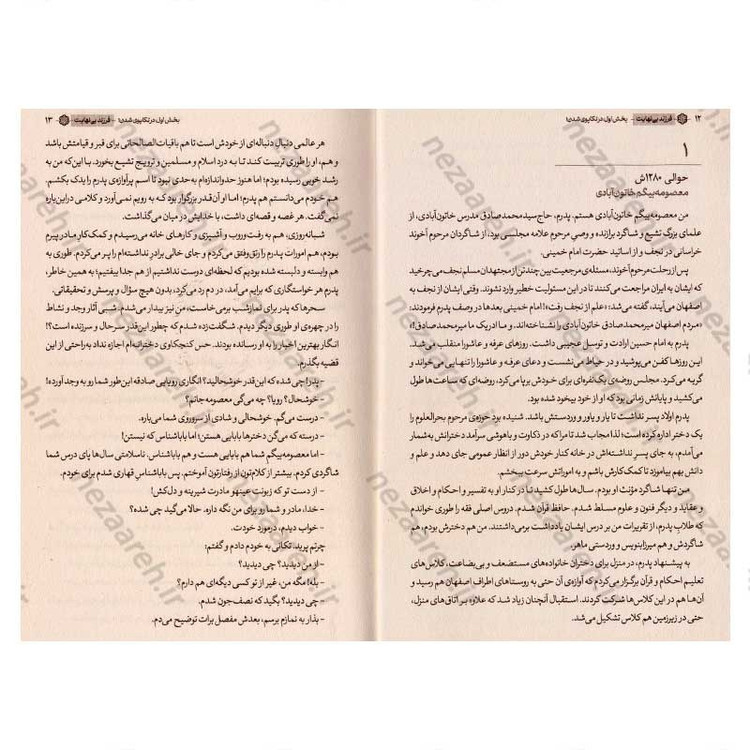 ۱۲ فرزند بی‌نهایت - بخش اول در تکاپوی شدن!
۱
حوالی ۱۲۸۰ش
معصومه بیگم خاتون‌آبادی
من معصومه‌بیگم خاتون‌آبادی هستم. پدرم، حاج سیدمحمدصادق مدرس خاتون‌آبادی، از
علمای بزرگ تشیع و شاگرد برازنده و وصیِ مرحوم علامه مجلسی بود، از شاگردان مرحوم آخوند
خراسانی در نجف و از اساتید حضرت امام خمینی.
پس از رحلت مرحوم آخوند، مسئله‌ی مرجعیت بین چند تن از مجتهدان مسلم نجف می‌چرخید
که ایشان به ایران مراجعت می‌کنند تا در این مسئولیت خطیر وارد نشوند. وقتی ایشان از نجف به
اصفهان می‌آیند، گفته می‌شد: «علم از نجف رفت»! امام خمینی بعدها در وصف پدرم فرمودند:
«مردم اصفهان میرمحمدصادق خاتون‌آبادی را نشناخته‌اند. و ما دریک ما میرمحمدصادق!»
پدرم به امام حسین ارادت و توسل عجیبی داشت. روزهای عرفه و عاشورا منقلب می‌شد.
این روزها کفن می‌پوشید و در حیاط می‌نشست و دعای عرفه و عاشورا را تنهایی می‌خواند و
گریه می‌کرد. مجلس روضه‌ی یک‌نفره‌ای برای خودش برپا می‌کرد، روضه‌ای که ساعت‌ها طول
می‌کشید و پایانش زمانی بود که او از خود بیخود شده بود.
پدرم اولاد پسر نداشت تا یار و یاور و وردستش باشد. شنیده بود حوزه‌ی مرحوم بحرالعلوم را
یک دختر اداره کرده است؛ لذا مجاب شد تا مرا که در ذکاوت و باهوشی سرآمد دخترانش به‌شمار
می‌آمدم، به جای پسرِ نداشته‌اش در خانه کنار خودش دور از انظار عمومی جای دهد و علم و
دانش بهم بیاموزد تا کمک‌کارش باشم و به اموراتش سرعت ببخشم.
من تنها شاگرد مؤنث او بودم. سال‌ها طول کشید تا در کنار او به تفسیر و احکام و اخلاق
و عقاید و دیگر فنون و علوم مسلط شدم. حافظ قرآن شدم. دروس اصلی فقه را طوری خواندم
که طلابِ پدرم، از تقریرات من بر درس ایشان یادداشت برمی‌داشتند. من هم دخترش بودم، هم
شاگردش و هم میرزابنویس و وردستی ماهر.
به پیشنهاد پدرم، در منزل برای دختران خانواده‌های مستضعف و بی‌بضاعت، کلاس‌های
تعلیم احکام و قرآن برگزار می‌کردم که آوازه‌ی آن حتی به روستاهای اطراف اصفهان هم رسید و
آن‌ها هم در این کلاس‌ها شرکت کردند. استقبال آنچنان زیاد شد که علاوه بر اتاق‌های منزل،
حتی در زیرزمین هم کلاس تشکیل می‌شد.
بخش اول در تکاپوی شدن! - فرزند بی‌نهایت ۱۳
هر عالمی دنبالِ دنباله‌ای از خودش است تا هم باقیات‌الصالحاتی برای قبر و قیامتش باشد
و هم، او را طوری تربیت کند تا به درد اسلام و مسلمین و ترویج تشیع بخورد. با این‌که من به
رشد خوبی رسیده بودم؛ اما هنوز حدواندازه‌ام به‌حدی نبود تا اسم پرآوازه‌ی پدرم را یدک بکشم.
هم خودم می‌دانستم هم پدرم؛ اما او آن‌قدر بزرگوار بود که به رویم نمی‌آورد و کلامی در این‌باره
نمی‌گفت. هر غصه و قصه‌ای داشت، با خدایش در میان می‌گذاشت.
شبانه‌روزی، هم به رفت‌وروب و آشپزی و کارهای خانه می‌رسیدم و کمک‌کار مادر پیرم
بودم، هم امورات پدرم را رتق‌وفتق می‌کردم و جای خالی برادرِ نداشته‌ام را پر می‌کردم. طوری به
هم وابسته و دلبسته شده بودیم که لحظه‌ای دوست نداشتیم از هم جدا بیفتیم؛ به همین خاطر،
پدرم هر خواستگاری که برایم می‌آمد، در دم رد می‌کرد، بدون هیچ سؤال و پرسش و تحقیقاتی.
سحرها که پدر برای نمازشب برمی‌خاست، من نیز بیدار می‌شدم. شبی آثار وجد و نشاط
را در چهره‌ی او طوری دیگر دیدم. شگفت‌زده شدم که چطور این‌قدر سرحال و سرزنده است؟!
انگار بهترین اخبار را به او رسانده بودند. حس کنجکاوی دخترانه‌ام اجازه نداد به‌راحتی از این
قضیه بگذرم.
- پدر! چی شده که این‌قدر خوشحالید؟ انگاری رویایی صادقه این‌طور شما رو به وجد آورده!
- خوشحال؟ رویا؟ چه می‌گی معصومه‌جانم؟
- درست می‌گم. خوشحالی و شادی از سروروی شما می‌باره.
- درسته که می‌گن دخترها بابایی هستن؛ اما باباشناس که نیستن!
- اما معصومه‌بیگم شما هم بابایی هست و هم باباشناس. ناسلامتی سال‌ها پای درس شما
شاگردی کردم. بیشتر از کلام‌تون از رفتارتون آموختم. پس باباشناسِ قهاری شدم برای خودم.
- از دست تو که زبونت عینهو مادرت شیرینه و دلکش!
- خدا، مادر و شما رو برای من نگه داره. حالا می‌گید چی شده؟
- خواب دیدم. درمورد خودت.
چرتم پرید. تکانی به خودم دادم و گفتم:
- از من دیدید؟ چی دیدید؟
- بله! مگه من، غیر از تو کسی دیگه‌ای هم دارم؟
- چی دیدید؟ بگید که نصف‌جون شدم.
- بذار به نمازم برسم، بعدش مفصل برات توضیح می‌دم.
nezaareh.ir